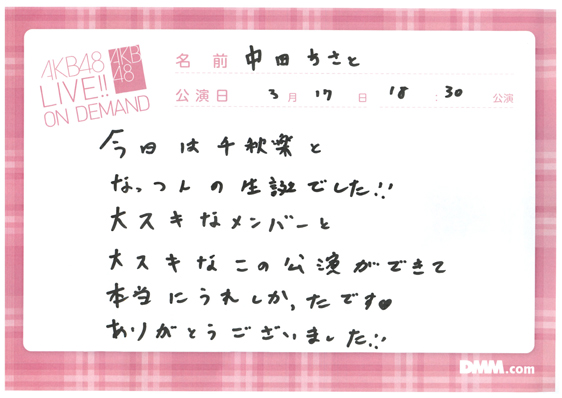 AKB48
LIVE!!
ON DEMAND
AKB
48
名前 中田ちさと
公演日 3月17日 18:30 公演
今日は千秋楽と
なっつんの生誕でした!!
大スキなメンバーと
大スキなこの公演ができて
本当にうれしかったです♥
ありがとうございました!!
DMM.com